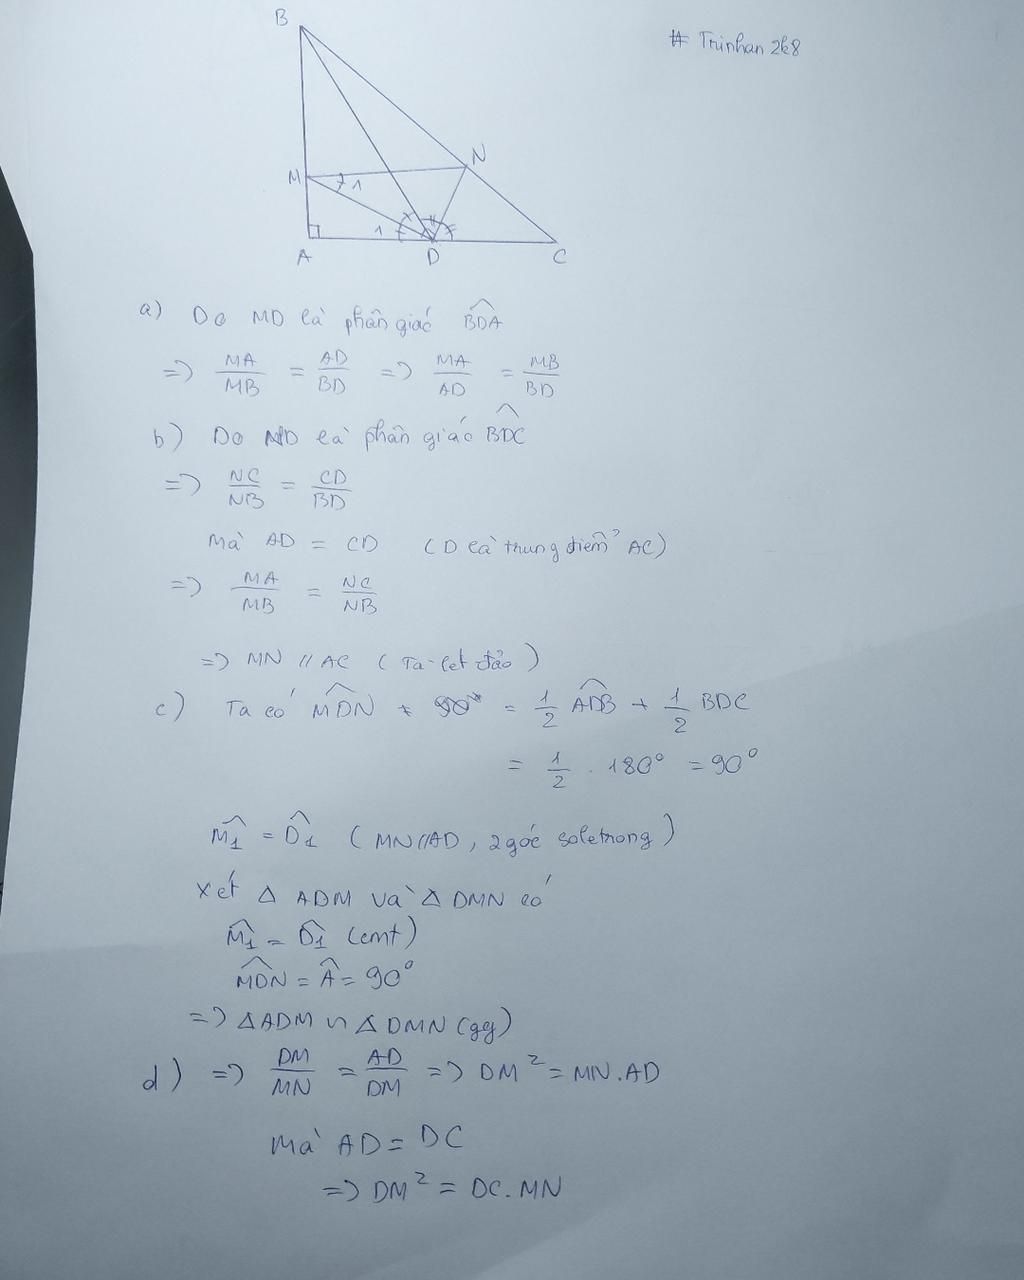 # Trinhan 2k8
B
M
1
N
A
1
D
C
a) Do MD là phân giác \widehat{BDA}
=> MA/MB = AD/BD => MA/AD = MB/BD
b) Do ND là phân giác \widehat{BDC}
=> NC/NB = CD/BD
Mà AD = CD (D là trung điểm AC)
=> MA/MB = NC/NB
=> MN // AC (Ta-let đảo)
c) Ta có \widehat{MDN} = 1/2 \widehat{ADB} + 1/2 BDC
= 1/2 . 180° = 90°
\widehat{M_1} = \widehat{D_1} (MN//AD, 2 góc soletrong)
xét Δ ADM và Δ DMN có
\widehat{M_1} = \widehat{D_1} (cmt)
\widehat{MDN} = \widehat{A} = 90°
=> Δ ADM ∽ Δ DMN (gg)
d) => DM/MN = AD/DM => DM² = MN.AD
Mà AD = DC
=> DM² = DC.MN